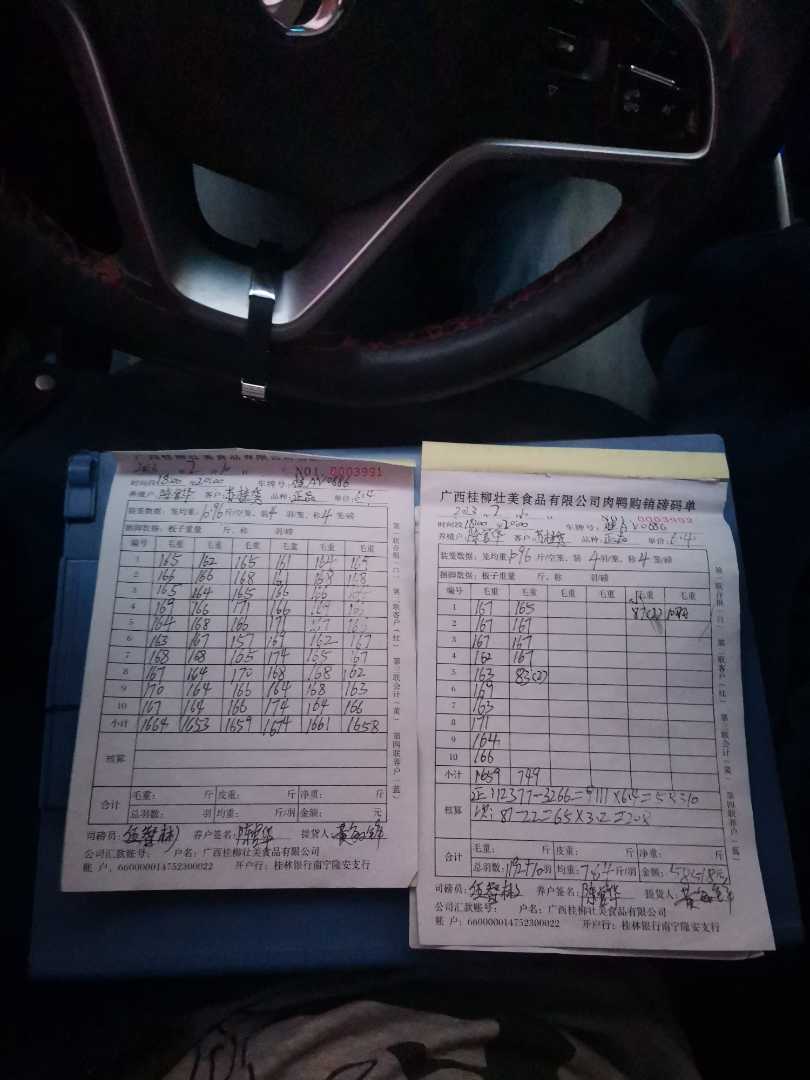 广西桂柳壮美食品有限公司肉鸭购销磅码单
2023 7
NO1. 0003991
时间段 18:00 至 20:00 车牌号: AV0886
养殖户: 客户: 品种: 正品 单价: 6.4
装笼数据: 笼均重 6.96 斤/空笼、装 4 羽/笼、称 4 笼/磅
捆脚数据: 板子重量 斤、称 羽/磅
编号 毛重 毛重 毛重 毛重 毛重 毛重
1 165 162 165 161 164 165
2 166 166 168 161 168 168
3 165 164 165 166 166
4 169 166 171 166
5 164 168 166 171
6 163 167 157 162 167
7 168 168 165 174 165 167
8 167 164 170 168 168 162
9 170 164 166 164 168 163
10 167 164 166 174 164 166
小计 1664 1653 1659 1674 1661 1658
核算
合计
毛重: 斤 皮重: 斤 净重: 斤
总羽数: 羽 均重: 斤/羽 金额: 元
司磅员: 养户签名: 提货人:
公司汇款账号: 户名: 广西桂柳壮美食品有限公司
账户: 660000014752300022 开户行: 桂林银行南宁隆安支行
第一联存根(白) 第二联客户(红) 第三联会计(黄) 第四联客户(蓝)
广西桂柳壮美食品有限公司肉鸭购销磅码单
2023 7
NO1. 0003992
时间段 18:00 至 20:00 车牌号: AV0886
养殖户: 客户: 品种: 正品 单价: 6.4
装笼数据: 笼均重 6.96 斤/空笼、装 4 羽/笼、称 4 笼/磅
捆脚数据: 板子重量 斤、称 羽/磅
编号 毛重 毛重 毛重 毛重 毛重 毛重
1 167 165 87(2)
2 167 167
3 167 167
4 162 167
5 163 83(2)
6 169
7 163
8 171
9 164
10 166
小计 1659 749
核算
正: 12377-3266=9111×6.4=58310
次: 87-22=65×3.2=208
合计
毛重: 斤 皮重: 斤 净重: 斤
总羽数: 羽 均重: 7.64 斤/羽 金额: 58518 元
司磅员: 养户签名: 提货人:
公司汇款账号: 户名: 广西桂柳壮美食品有限公司
账户: 660000014752300022 开户行: 桂林银行南宁隆安支行
第一联存根(白) 第二联客户(红) 第三联会计(黄) 第四联客户(蓝)